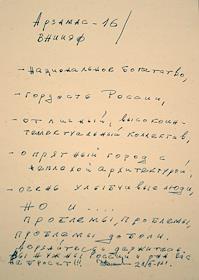 Арзамас-16/
ВНИИЭФ
- национальное богатство,
- гордость России,
- отличный, высокоин-
теллектуальный коллектив,
- опрятный город с
неплохой архитектурой,
- очень улыбчивые люди,
НО и ...
проблемы, проблемы,
проблемы
держитесь,
Вы нужны России и она Вас
не бросит!!!